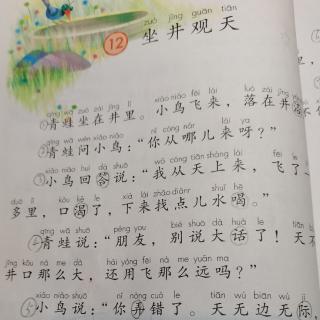 zuò jǐng guān tiān
12 坐井观天
qīng wā zuò zài jǐng lǐ xiǎo niǎo fēi lái luò zài jǐng
①青蛙坐在井里。小鸟飞来，落在井
qīng wā wèn xiǎo niǎo nǐ cóng nǎr lái ya
②青蛙问小鸟：“你从哪儿来呀？”
xiǎo niǎo huí dá shuō wǒ cóng tiān shàng lái fēi le
③小鸟回答说：“我从天上来，飞了
duō lǐ kǒu kě le xià lái zhǎo diǎnr shuǐ hē
多里，口渴了，下来找点儿水喝。”
qīng wā shuō péng yǒu bié shuō dà huà le tiān
④青蛙说：“朋友，别说大话了！天
jǐng kǒu nà me dà hái yòng fēi nà me yuǎn ma
井口那么大，还用飞那么远吗？”
xiǎo niǎo shuō nǐ nòng cuò le tiān wú biān wú jì
⑤小鸟说：“你弄错了。天无边无际，